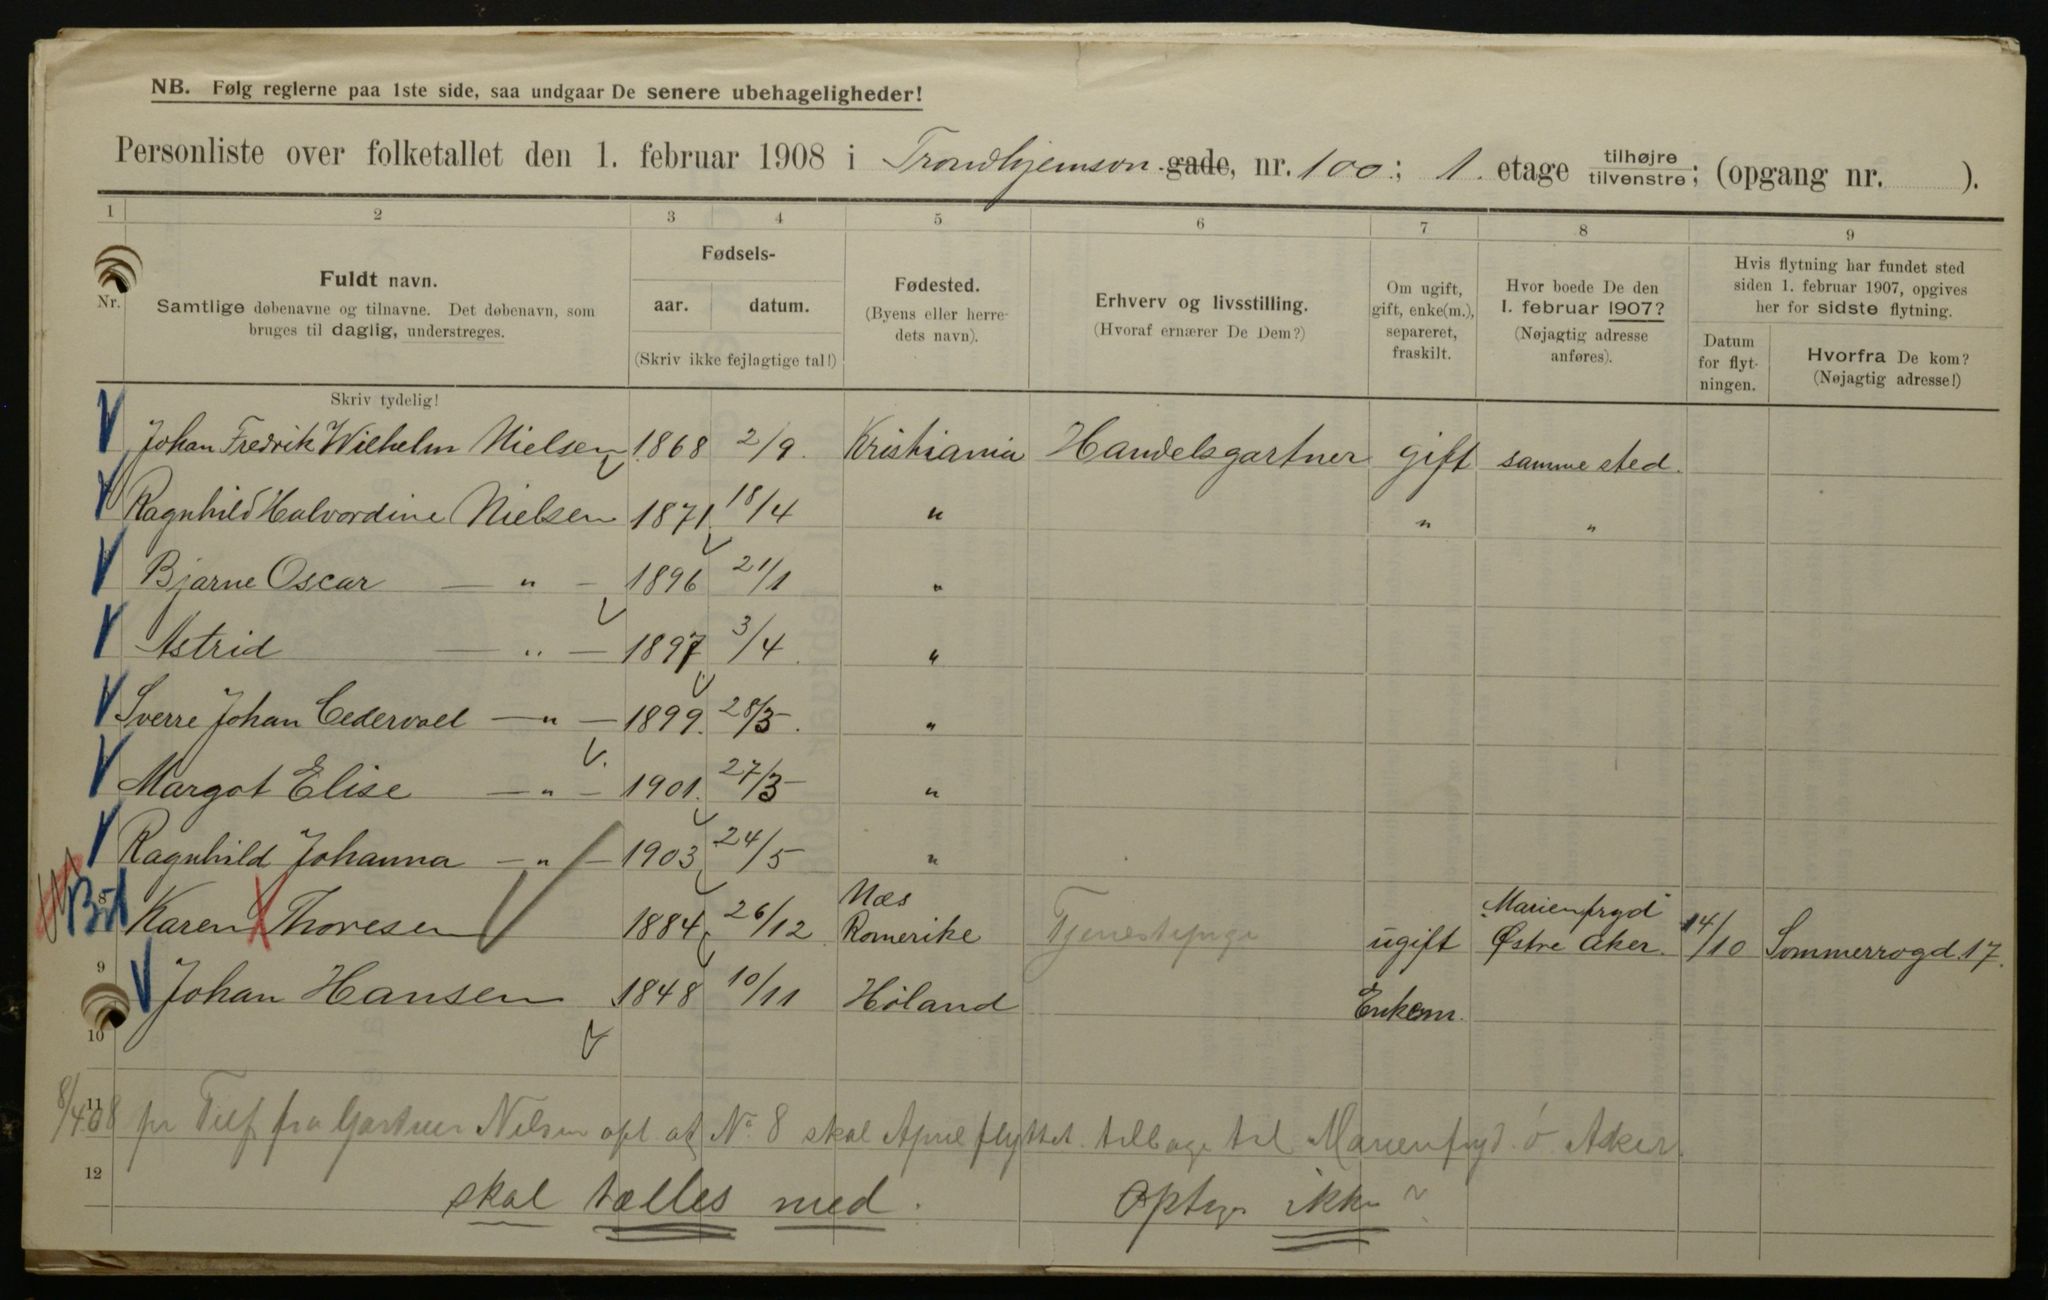 NB. Følg reglerne paa 1ste side, saa undgaar De senere ubehageligheder!
Personliste over folketallet den 1. februar 1908 i Trondhjemsvn. gade, nr. 100; 1. etage tilhøjre tilvenstre; (opgang nr. ).
1 2 3 4 5 6 7 8 9
Nr.
Fuldt navn.
Samtlige døbenavne og tilnavne. Det døbenavn, som
bruges til daglig, understreges.
Fødsels-
aar. datum.
(Skriv ikke fejlagtige tal!)
Fødested.
(Byens eller herre-
dets navn).
Erhverv og livsstilling.
(Hvoraf ernærer De Dem?)
Om ugift,
gift, enke(m.),
separeret,
fraskilt.
Hvor boede De den
1. februar 1907?
(Nøjagtig adresse
anføres).
Hvis flytning har fundet sted
siden 1. februar 1907, opgives
her for sidste flytning.
Datum
for flyt-
ningen.
Hvorfra De kom?
(Nøjagtig adresse!)
Skriv tydelig!
Johan Fredrik Wilhelm Nielsen 1868 2/9. Kristiania Handelsgartner gift samme sted.
Ragnhild Halvordine Nielsen 1871 18/4 " " "
Bjarne Oscar — " — 1896 21/1 "
Astrid — " — 1897 3/4. "
Sverre Johan Cedervall — " — 1899. 28/3. "
Margot Elise — " — 1901. 27/3 "
Ragnhild Johanna — " — 1903 24/5 "
8 Karen Thoresen 1884 26/12 Næs Romerike Tjenestepige ugift Marienfryd Østre Aker. 14/10 Sommerrogd. 17.
9 Johan Hansen 1848 10/11 Høland Enkem.
10
11
8/4 08 pr Telf fra Gartner Nilsen opl. at No 8 skal April flyttet tilbage til Marienfryd Ø Aker.
12
skal tælles med. Optages ikke